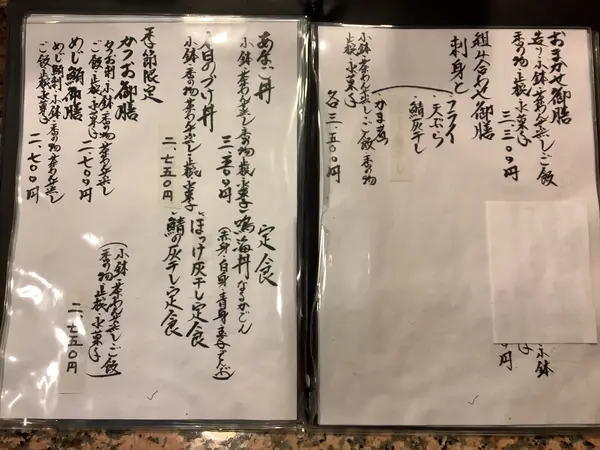 おまかせ御膳
造り・小鉢・茶わん蒸し・ご飯
香の物・止椀・水菓子
三、三〇〇円
組み合わせ御膳
刺身と
フライ
天ぷら
鯖灰干し
かま煮
小鉢・茶わん蒸し・ご飯・香の物
止椀・水菓子
各三、五〇〇円
小鉢
円
あなご丼
小鉢・茶わん蒸し・香の物・止椀・水菓子
三、三〇〇円
本日のづけ丼
小鉢・香の物・茶わん蒸し・止椀・水菓子
二、七五〇円
季節限定
かつお御膳
かつお刺・小鉢・香の物・茶わん蒸し
ご飯・止椀・水菓子
二、七〇〇円
めじ鮪御膳
めじ鮪刺・小鉢・香の物・茶わん蒸し
ご飯・止椀・水菓子
二、七〇〇円
定食
鳴海丼なるみどん
(赤身・白身・青身)
ほっけ灰干し定食
鯖の灰干し定食
(小鉢・茶わん蒸し・ご飯
香の物・止椀・水菓子)
二、七五〇円